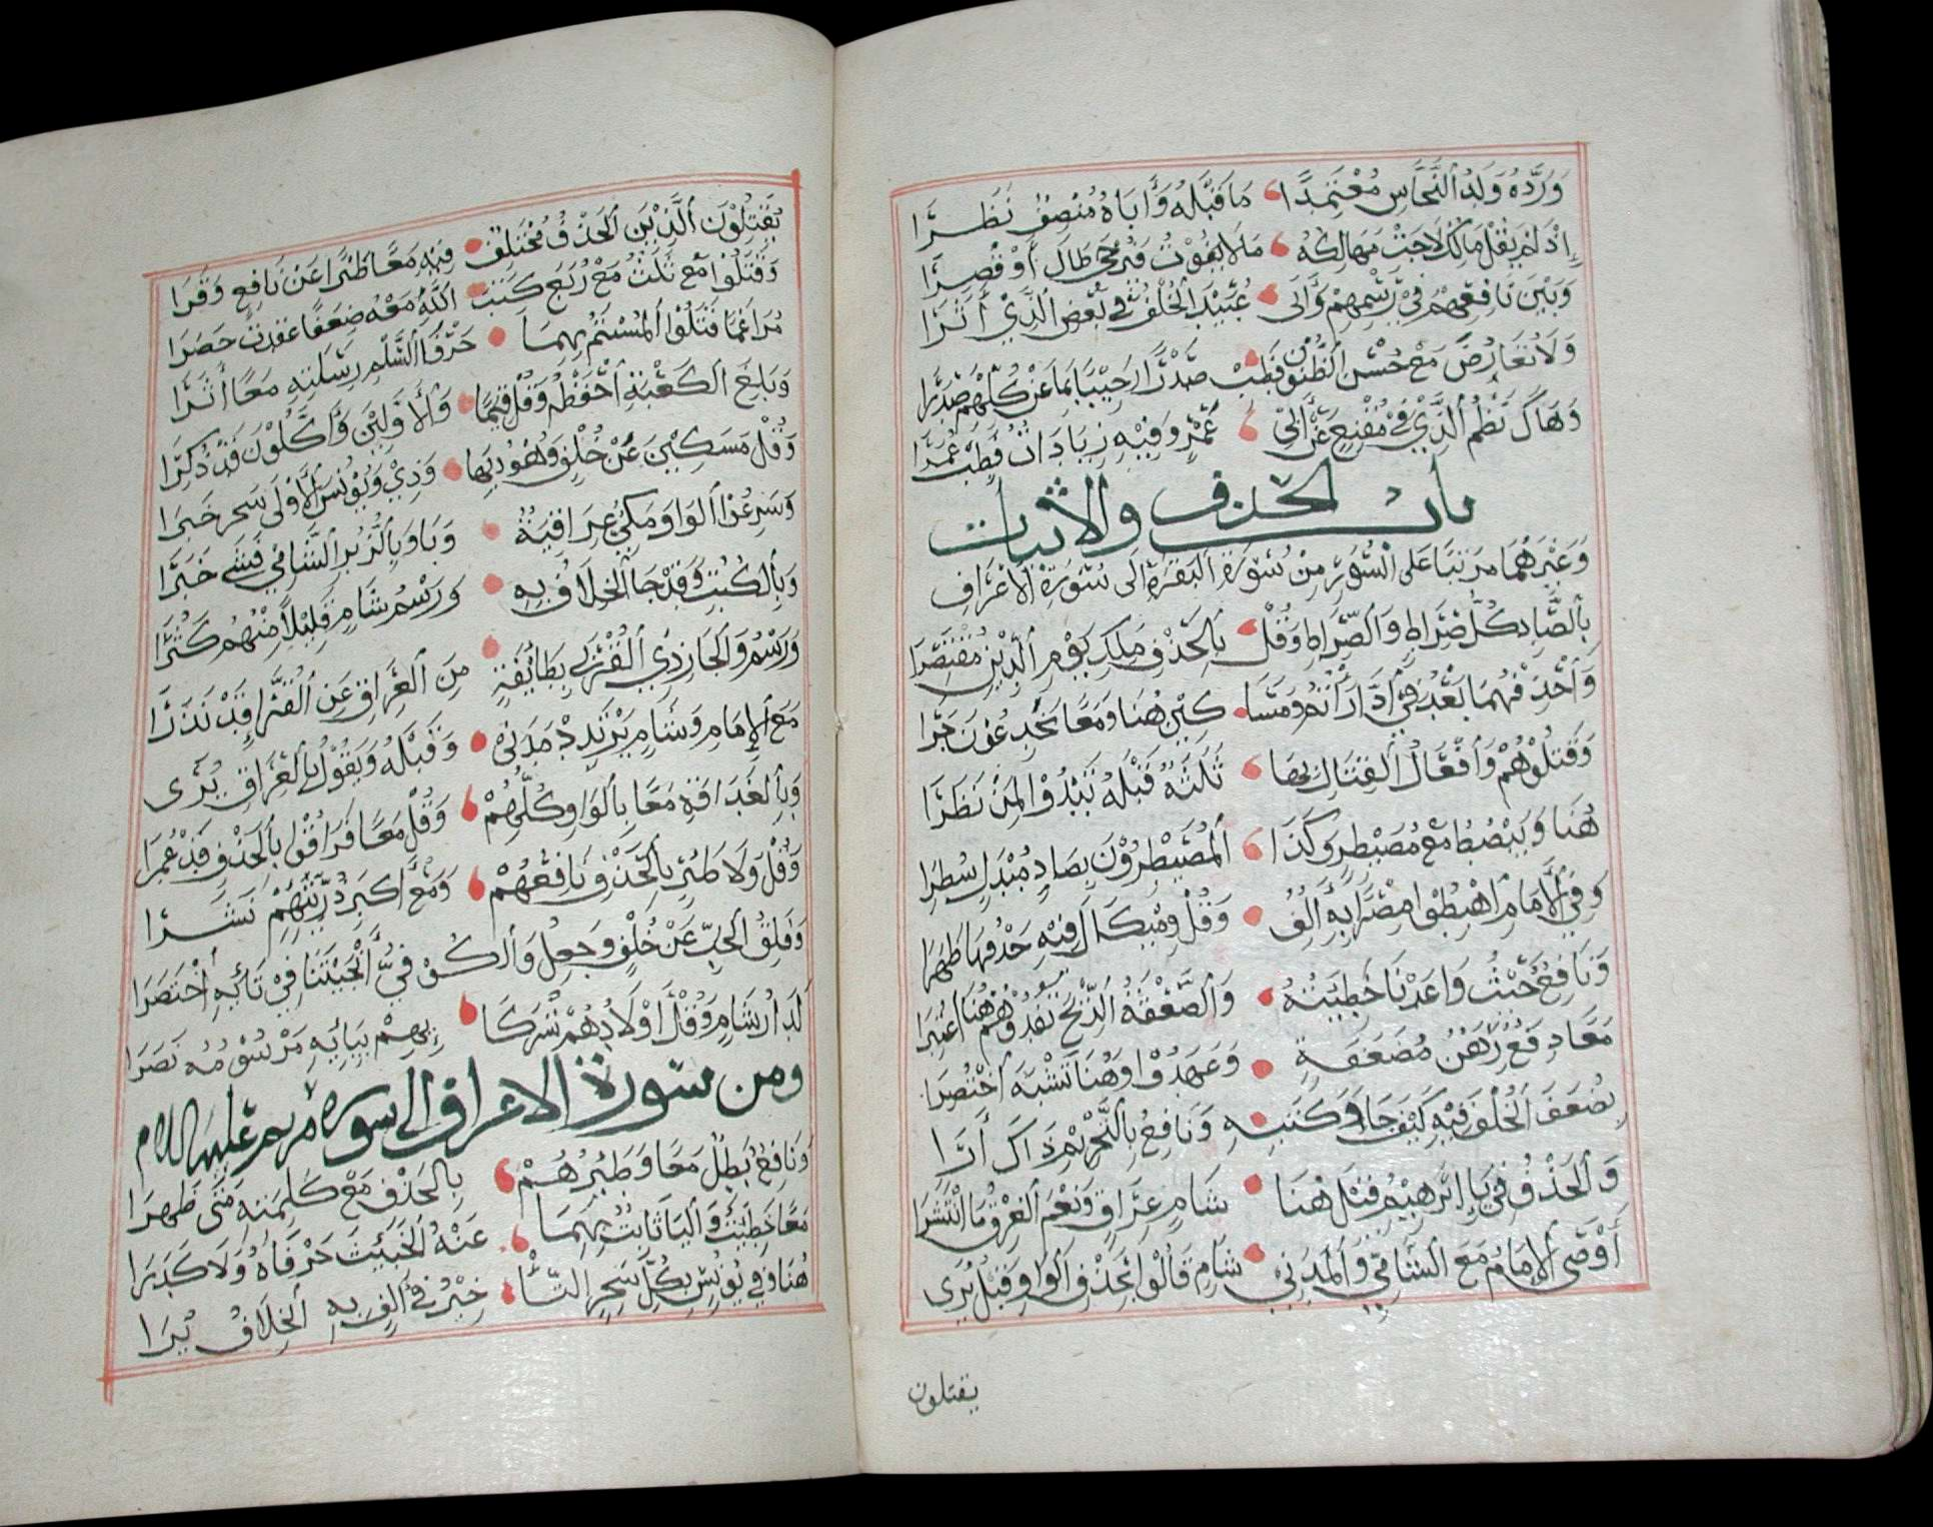 وَرَدَّهُ وَلَدُ ٱلنَّحَّاسِ مُعْتَمِدًا مَا قَبْلَهُ وَأَبَاهُ مُنْصِفٌ نَظَرَا
إِذْ لَمْ يَقُلْ مَالِكٌ لَاحَتْ مَهَالِكُهُ مَا لَا يَفُوتُ فَيُرْجَى طَالَ أَوْ قَصُرَا
وَبَيْنَ نَافِعِهِمْ فِي رَسْمِهِمْ وَأَبِي عُبَيْدٍ الْخُلْفُ فِي بَعْضِ ٱلَّذِي أَثَرَا
وَلَا تَعَارُضَ مَعْ حُسْنِ ٱلظُّنُونِ فَطِبْ صَدْرًا رَحِيبًا بِمَا عَنْ كُلِّهِمْ صَدَرَا
وَهَاكَ نَظْمُ ٱلَّذِي فِي مُقْنِعٍ عَنْ أَبِي عَمْرٍو وَفِيهِ زِيَادَاتٌ فَطِبْ عُمُرَا
باب الحذف والاثبات
وَغَيْرِهِمَا مُرَتَّبًا عَلَى ٱلسُّوَرِ مِنْ سُورَةِ ٱلْبَقَرَةِ إِلَى سُورَةِ ٱلْأَعْرَافِ
بِٱلصَّادِ كُلُّ صِرَاطٍ وَٱلصِّرَاطِ وَقُلْ بِٱلْحَذْفِ مَلِكِ يَوْمِ ٱلدِّينِ مُقْتَصِرَا
وَٱحْذِفْهُمَا بَعْدُ فِي ٱدَّارَأْتُمُ وَمَسَا كِينَ هُنَا وَمَعًا يُخَدِعُونَ جَرَا
وَقَتِلُوهُمْ وَأَفْعَالُ ٱلْقِتَالِ بِهَا ثَلَثَةٌ قَبْلَهُ تَبْدُو لِمَنْ نَظَرَا
هُنَا وَيَبْصُطُ مَعْ مُصَيْطِرٍ وَكَذَا ٱلْمُصَيْطِرُونَ بِصَادٍ مُبْدَلٍ سُطِرَا
وَفِي ٱلْإِمَامِ ٱهْبِطُوا مِصْرًا بِهِ أَلِفٌ وَقُلْ وَمِيكَالَ فِيهِ حَذْفُهَا ظَهَرَا
وَنَافِعٌ حَيْثُ وَاعَدْنَا خَطِيئَتُهُ وَٱلصَّعْقَةُ ٱلرِّيحُ تَفْدُوهُمْ هُنَا ٱعْتُبِرَا
مَعًا دِفَعُ رِهَنٌ مُضَعَفَةً وَعَهَدُوا وَهُنَا تَشَبَهَ ٱخْتُصِرَا
يُضَعَفُ ٱلْخُلْفُ فِيهِ كَيْفَ جَا وَكِتَبِهِ وَنَافِعٌ بِٱلتَّحْرِيمِ ذَاكَ أَرَا
وَٱلْحَذْفُ فِي يَاءِ إِبْرَهِيمَ قِيلَ هُنَا شَامٍ عِرَاقٍ وَنِعْمَ ٱلْعِرْقُ مَا ٱنْتَشَرَا
أَوْصَى ٱلْإِمَامُ مَعَ ٱلشَّامِيِّ وَٱلْمَدَنِيِّ شَامٍ قَالُوا بِحَذْفِ ٱلْوَاوِ قَبْلُ يُرَى
يقتلون
يُقَتِلُونَ ٱلَّذِينَ ٱلْحَذْفُ مُخْتَلِفٌ فِيهِ مَعًا طَئِرًا عَنْ نَافِعٍ وَقَرَا
وَقَتَلُوا مَعْ ثُلَثَ مَعْ رُبَعَ كِتَبَ ٱللَّهِ مَعْهُ ضِعَفًا عَقَدَتْ حَصَرَا
مُرَاغَمًا قَتَلُوا لَمَسْتُمُ بِهِمَا حَرْفَا ٱلسَّلَمِ رِسَلَتِهِ مَعًا أُثِرَا
وَبَلِغَ ٱلْكَعْبَةِ ٱحْفَظْهُ وَقُلْ قِيَمًا وَٱلْأَوْلَيَنِ وَأَكَّلُونَ قَدْ ذُكِرَا
وَقُلْ مَسَكِينَ عَنْ خُلْفٍ وَهُودَ بِهَا وَذِي وَيُونُسَ ٱلْأُولَى سَحِرٌ خَبَرَا
وَسَارِعُوا ٱلْوَاوَ مَكِّيٌّ عِرَاقِيَةٌ وَبَا وَبِٱلزُّبُرِ ٱلشَّامِي فَشَا خَبَرَا
وَبِٱلْكِتَبِ وَقَدْ جَا ٱلْخِلَافُ بِهِ وَرَسْمُ شَامٍ قَلِيلًا مِنْهُمُ كَثُرَا
وَرَسْمُ وَٱلْجَارِ ذِي ٱلْقُرْبَى بِطَائِفَةٍ مِنَ ٱلْعِرَاقِ عَنِ ٱلْفَرَّاءِ قَدْ نَدَرَا
مَعَ ٱلْإِمَامِ وَشَامٍ يَرْتَدِدْ مَدَنِي وَقَبْلَهُ وَيَقُولُ بِٱلْعِرَاقِ يُرَى
وَبِٱلْغَدَاةِ مَعًا بِٱلْوَاوِ كُلُّهُمْ وَقُلْ مَعًا فَرَقُوا بِٱلْحَذْفِ قَدْ عُمِرَا
وَقُلْ وَلَا طَئِرٍ بِٱلْحَذْفِ نَافِعُهُمْ وَمَعْ أَكَبِرَ ذُرِّيَّتِهِمْ نَشَرَا
وَفَلِقُ ٱلْحَبِّ عَنْ خُلْفٍ وَجَعِلُ وَٱلْكُوفِيُّ أَنْجَيْتَنَا فِي تَائِهِ ٱخْتَصَرَا
لَدَارُ شَامٍ وَقُلْ أَوْلَادَهُمْ شُرَكَا ئِهِمْ بِيَائِهِ مَرْسُومُهُ نَصَرَا
ومن سورة الاعراف الى سورة مريم عليها السلام
وَنَافِعٌ بَطِلٌ مَعًا وَطَئِرُهُمْ بِٱلْحَذْفِ مَعْ كَلِمَتِهِ مَتَى ظَهَرَا
مَعًا خَطِيئَتِ وَٱلْيَا ثَابِتٌ بِهِمَا عَنْهُ ٱلْخَبَئِثَ حَرْفَاهُ وَلَا كَدَرَا
هُنَا وَفِي يُونُسٍ بِكُلِّ سَحِرٍ ٱلتَّأْخِيرُ فِي أَلِفٍ بِهِ ٱلْخِلَافُ يُرَا